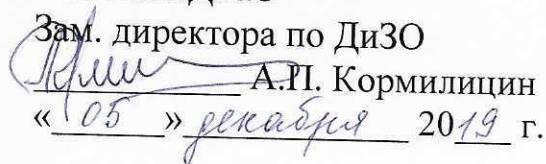 Зам. директора по ДиЗО
А.П. Кормилицин
« 05 » декабря 2019 г.